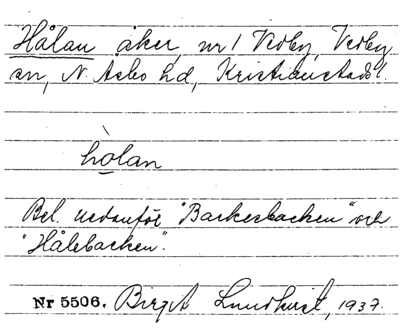 Hålan åker, nr 1 Vedby, Vedby
sn, N. Åsbo hd, Kristianstads l.
hò̱lan
Bel. nedanför "Backesbacken" och
"Hålebacken".
Nr 5506. Birgit Lundkvist, 1937.